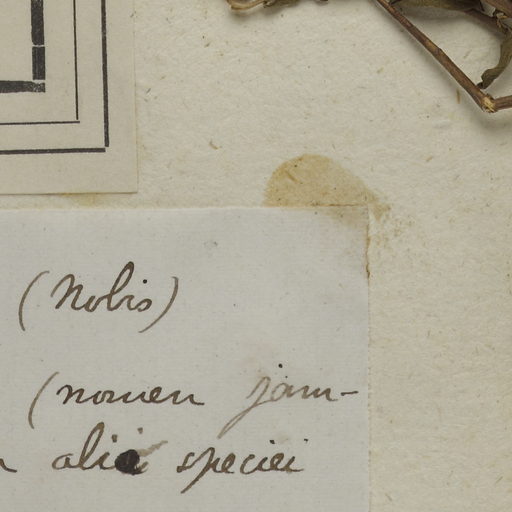 (Nobis)
(nomen jam-
alii speciei